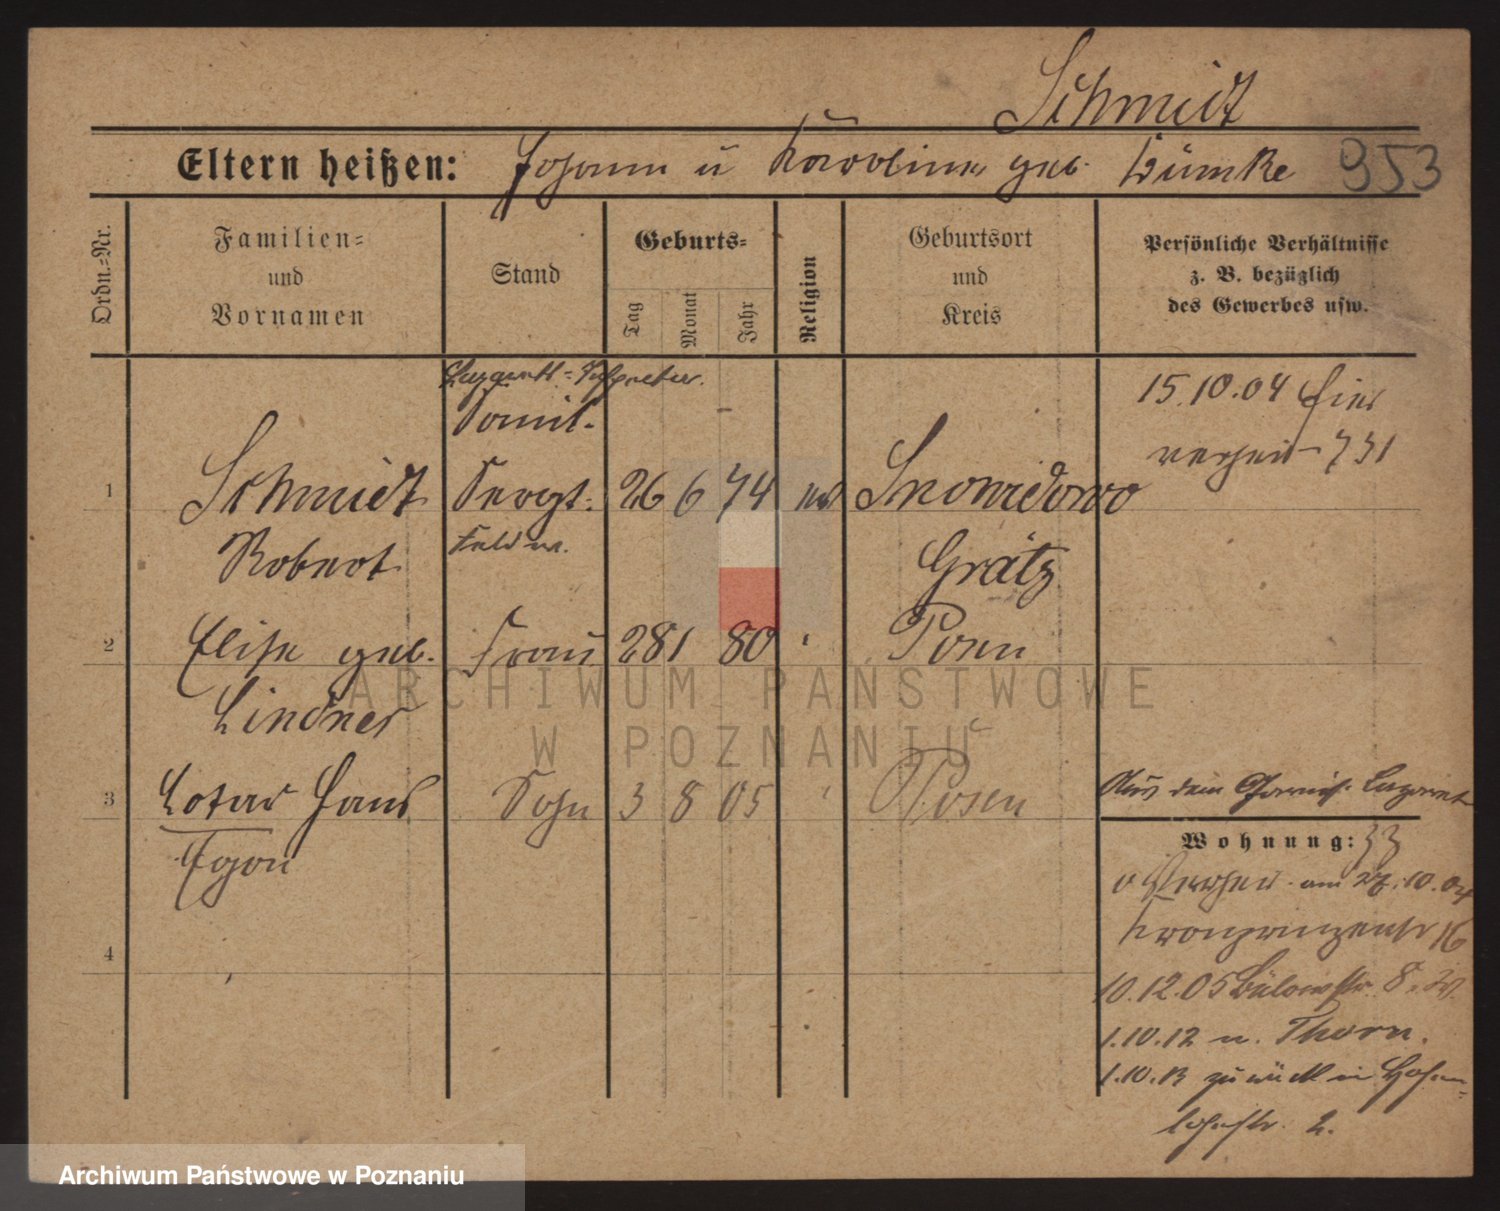 Schmidt
Eltern heißen: Johann u Karoline geb. Dümke 953
Ordn.-Nr.
Familien-
und
Vornamen
Stand
Geburts-
Tag
Monat
Jahr
Religion
Geburtsort
und
Kreis
Persönliche Verhältnisse
z. B. bezüglich
des Gewerbes usw.
Lazarett-Inspektor.
Sanit.
15.10.04 hier
verheir 731
1 Schmidt Sergt. 26 6 74 ev Snowidowo
Robert Feldw. Grätz
2 Elise geb. Frau 28 1 80 " Posen
Lindner
3 Lotar Hans Sohn 3 8 05 " Posen
Egon
Aus dem Garnis. Lazarett
Wohnung: 33
am 27.10.04
Kronprinzenstr 16
4
10.12.05 Bülowstr. 8.
1.10.12 n. Thorn.
1.10.13 zurück in Hohen-
lohestr. 2.
ARCHIWUM PAŃSTWOWE
W POZNANIU
Archiwum Państwowe w Poznaniu